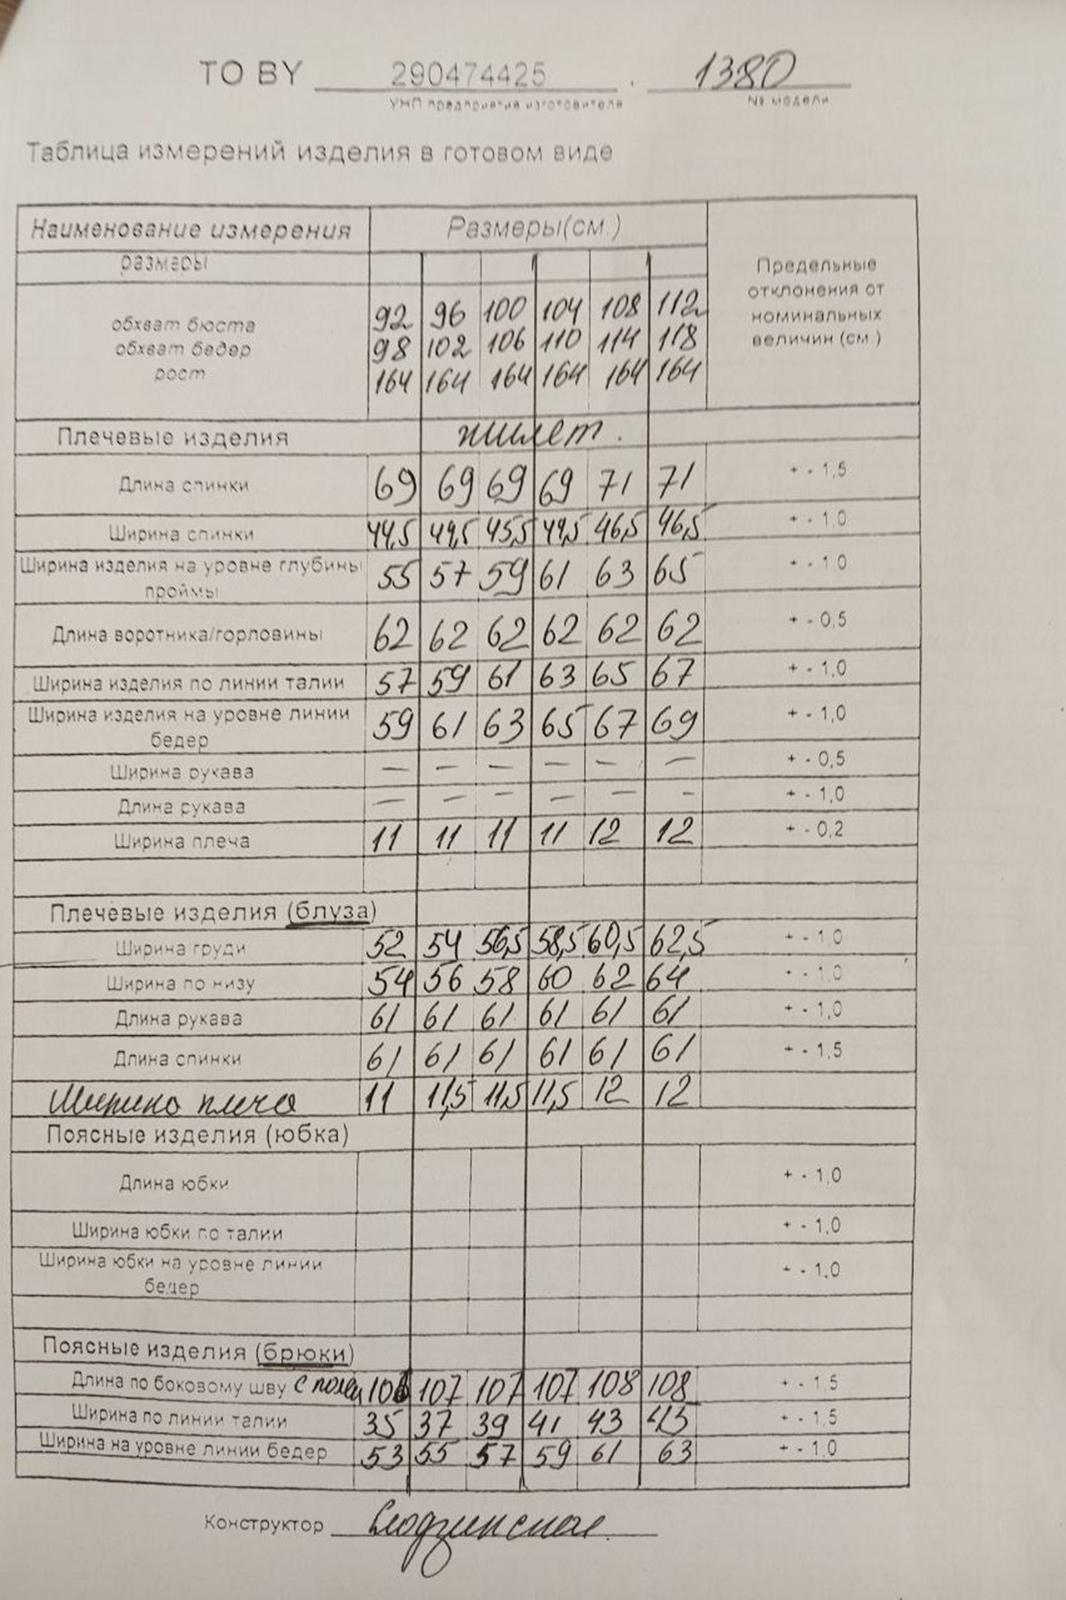 TO BY 290474425 . 1380
УНП предприятия изготовителя № модели
Таблица измерений изделия в готовом виде
Наименование измерения Размеры(см.) Предельные отклонения от номинальных величин (см.)
размеры
обхват бюста 92 96 100 104 108 112
обхват бедер 98 102 106 110 114 118
рост 164 164 164 164 164 164
Плечевые изделия жилет.
Длина спинки 69 69 69 69 71 71 + - 1,5
Ширина спинки 44,5 44,5 45,5 44,5 46,5 46,5 + - 1,0
Ширина изделия на уровне глубины проймы 55 57 59 61 63 65 + - 1 0
Длина воротника/горловины 62 62 62 62 62 62 + - 0,5
Ширина изделия по линии талии 57 59 61 63 65 67 + - 1,0
Ширина изделия на уровне линии бедер 59 61 63 65 67 69 + - 1,0
Ширина рукава — — — — — — + - 0,5
Длина рукава — — — — — - + - 1,0
Ширина плеча 11 11 11 11 12 12 + - 0,2
Плечевые изделия (блуза)
Ширина груди 52 54 56,5 58,5 60,5 62,5 + - 1,0
Ширина по низу 54 56 58 60 62 64 + - 1,0
Длина рукава 61 61 61 61 61 61 + - 1,0
Длина спинки 61 61 61 61 61 61 + - 1,5
Ширина плеча 11 11,5 11,5 11,5 12 12
Поясные изделия (юбка)
Длина юбки + - 1,0
Ширина юбки по талии + - 1,0
Ширина юбки на уровне линии бедер + - 1,0
Поясные изделия (брюки)
Длина по боковому шву с 106 107 107 107 108 108 + - 1,5
Ширина по линии талии 35 37 39 41 43 43 + - 1,5
Ширина на уровне линии бедер 53 55 57 59 61 63 + - 1,0
Конструктор